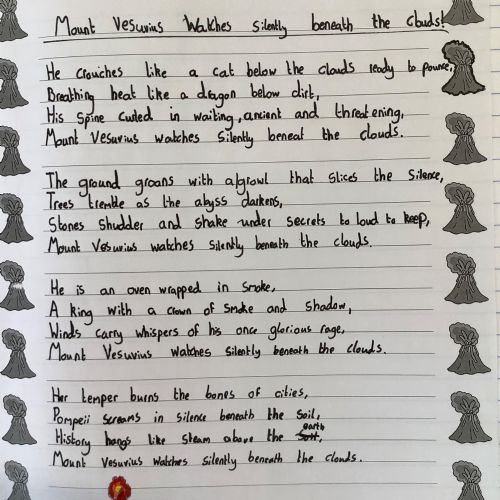 Mount Vesuvius Watches silently beneath the clouds!
He crouches like a cat below the clouds ready to pounce,
Breathing heat like a dragon below dirt,
His spine curled in waiting, ancient and threatening,
Mount Vesuvius watches silently beneat the clouds.
The ground groans with a growl that slices the silence,
Trees tremble as the abyss darkens,
Stones shudder and shake under secrets to loud to keep,
Mount Vesuvius watches silently beneath the clouds.
He is an oven wrapped in smoke,
A king with a crown of smoke and shadow,
Winds carry whispers of his once glorious rage,
Mount Vesuvius watches silently beneath the clouds.
Her temper burns the bones of cities,
Pompeii screams in silence beneath the soil,
History hangs like steam above the earth,
Mount Vesuvius watches silently beneath the clouds.